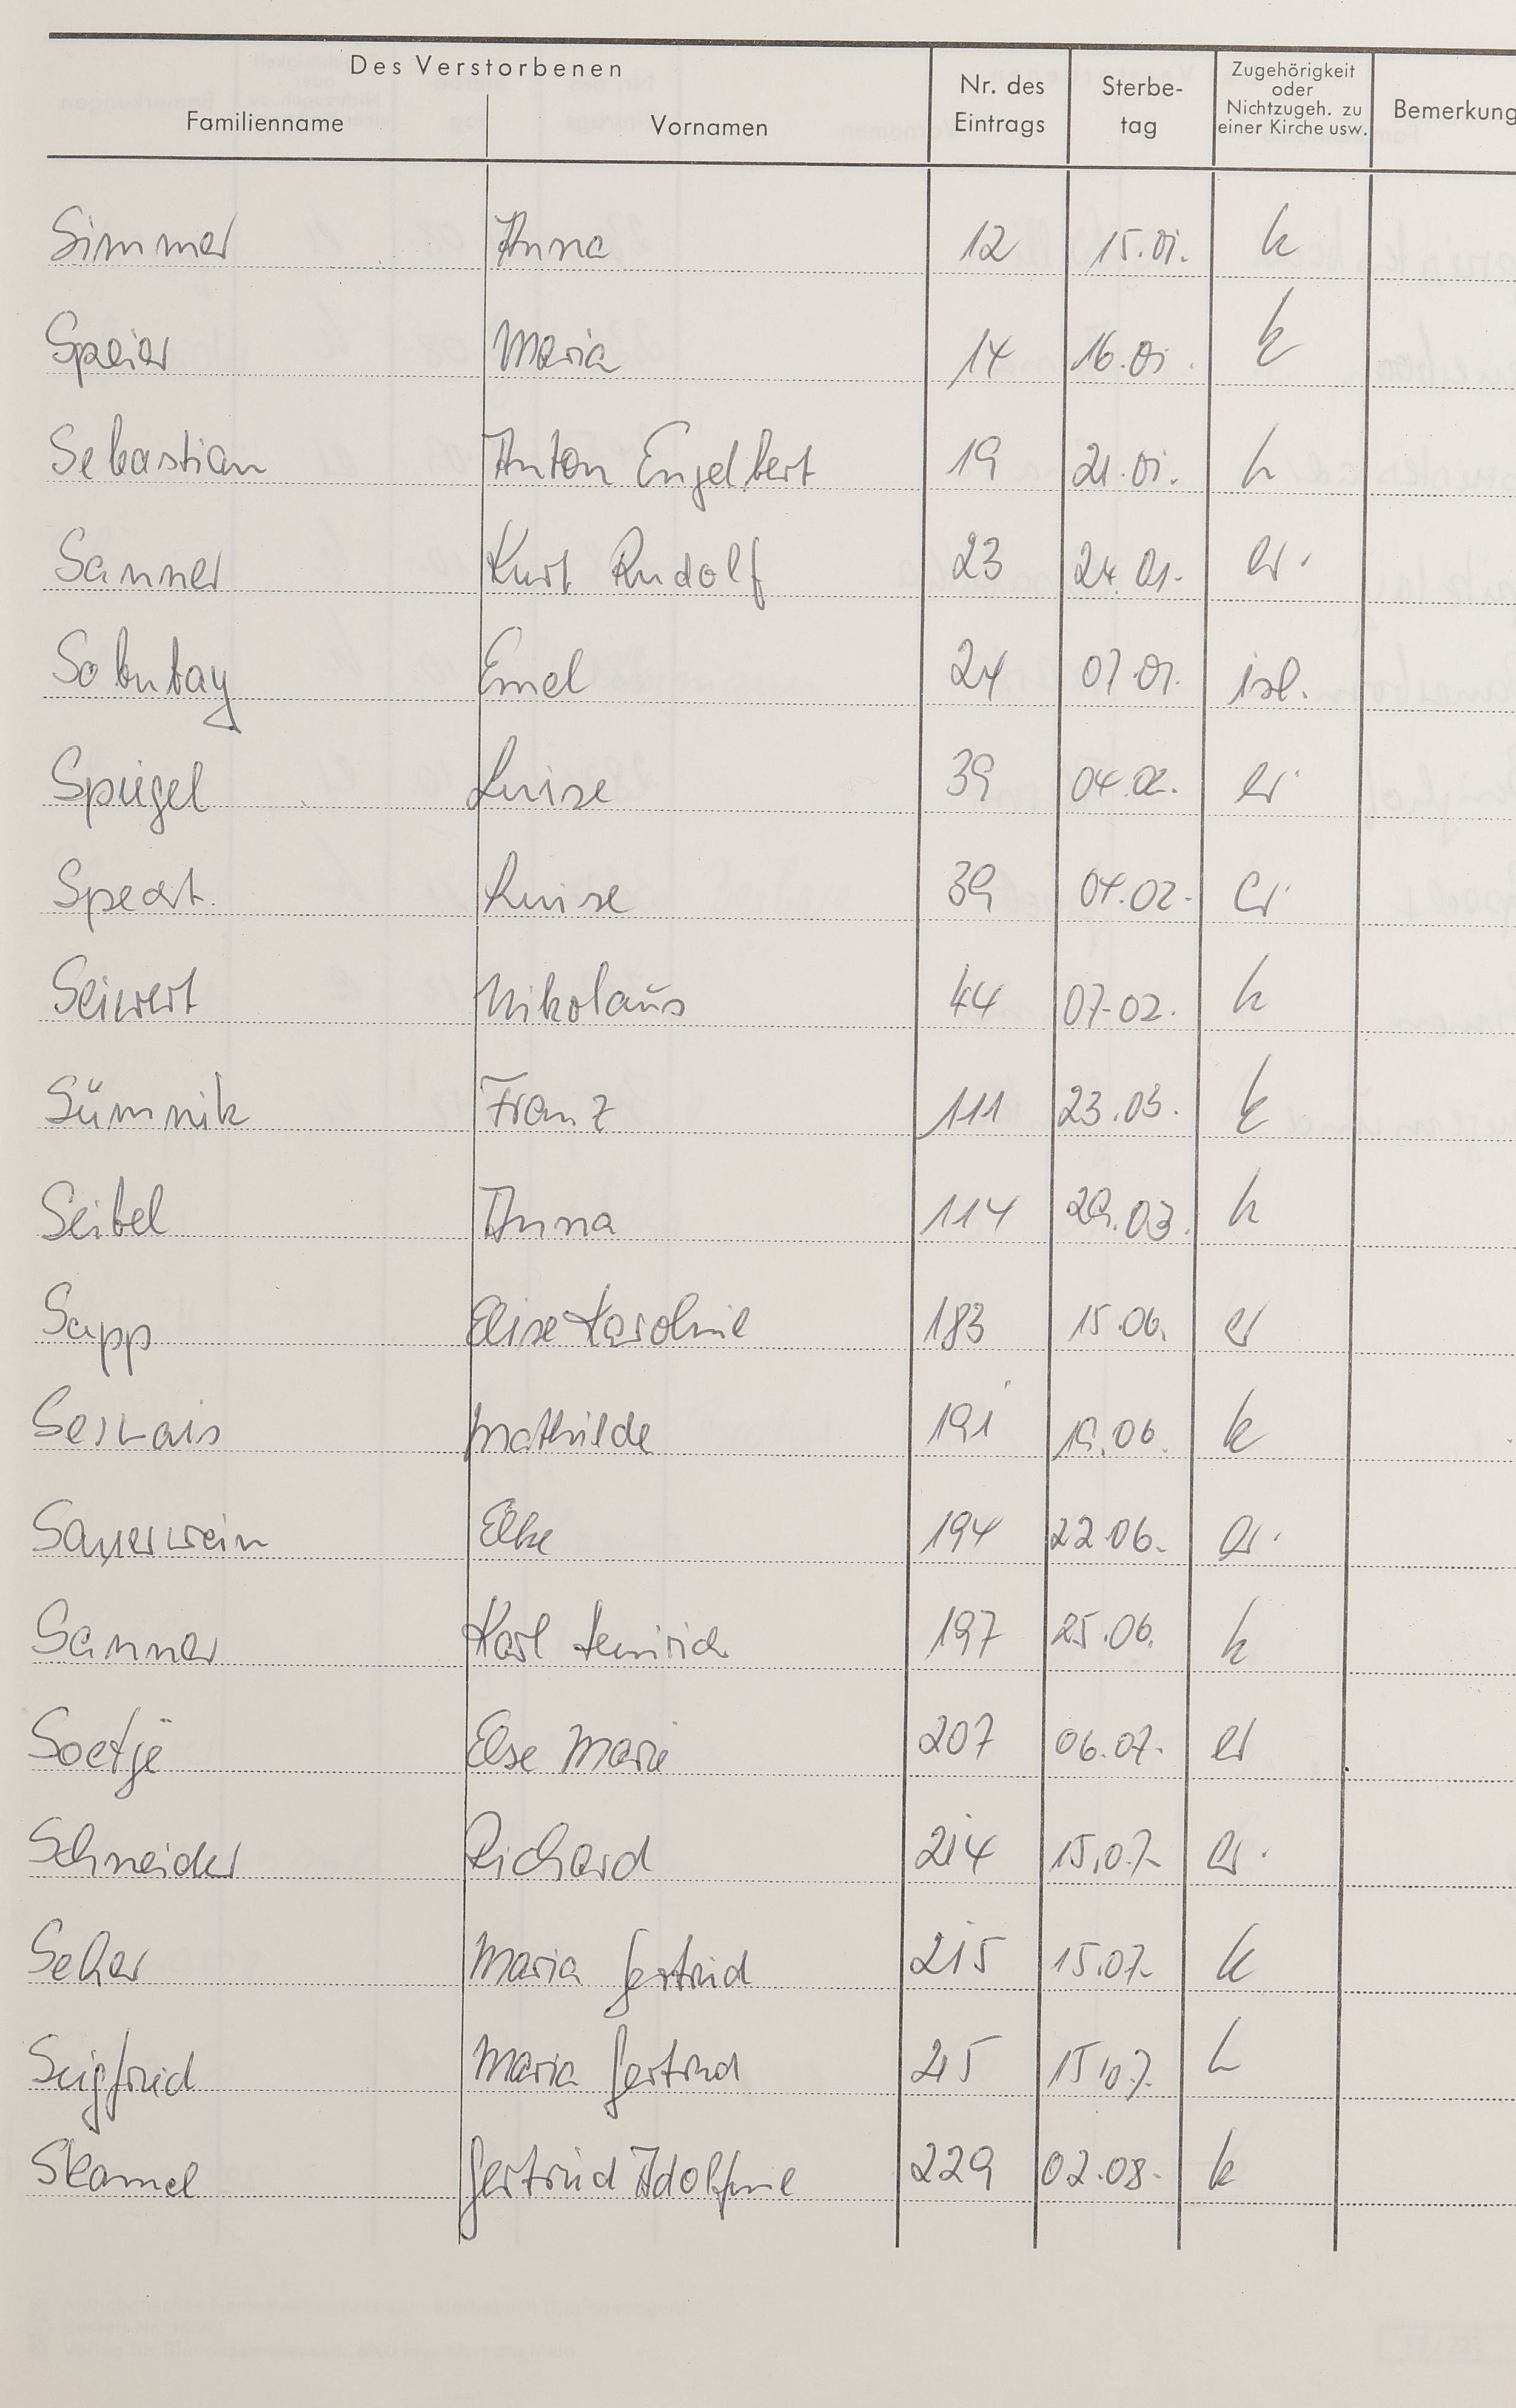 Des Verstorbenen
Familienname Vornamen Nr. des Eintrags Sterbe-tag Zugehörigkeit oder Nichtzugeh. zu einer Kirche usw. Bemerkung
Simmer Anna 12 15.01. k
Speier Maria 14 16.01. k
Sebastian Anton Engelbert 19 21.01. k
Sanner Kurt Rudolf 23 24.01. ev.
Solubay Emel 24 07.01. isl.
Spiegel Luise 39 04.02. ev.
Specht Luise 39 04.02. ev.
Seiwert Nikolaus 44 07.02. k
Sümnik Franz 111 23.03. k
Seibel Anna 114 29.03. k
Sapp Elise Karoline 183 15.06. ev
Servais Mathilde 191 19.06. k
Sauerwein Elke 194 22.06. ev.
Sanner Karl Heinrich 197 25.06. k
Soetje Else Marie 207 06.07. ev
Schneider Richard 214 15.07. ev.
Seher Maria Gertrud 215 15.07. k
Seigfried Maria Gertrud 215 15.07. k
Skamel Gertrud Adolfine 229 02.08. k